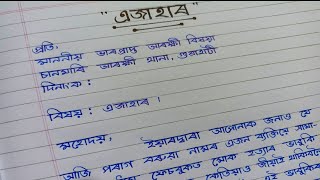 "এজাহাৰ"
প্ৰতি,
মাননীয় ভাৰপ্ৰাপ্ত আৰক্ষী বিষয়া
চানমাৰি আৰক্ষী থানা, গুৱাহাটী
দিনাংক :
বিষয় : এজাহাৰ ।
মহোদয়,
ইয়াৰদ্বাৰা আপোনাক জনাও যে
আজি পৰাগ বৰুৱা নামৰ এজন ব্যক্তিয়ে সামা-
ফেচবুকত মোক হত্যাৰ ভাবুকি